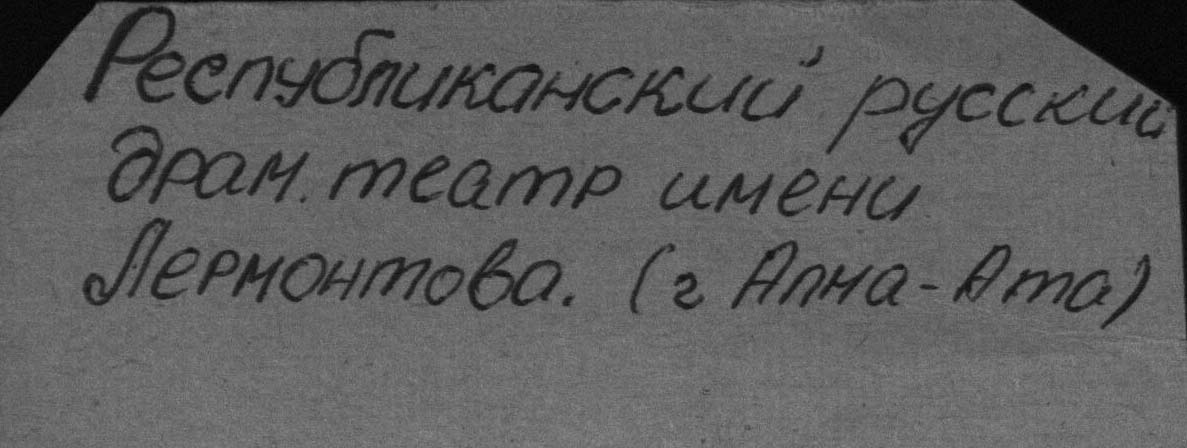 Республиканский русский
драм. театр имени
Лермонтова. (г Алма-Ата)